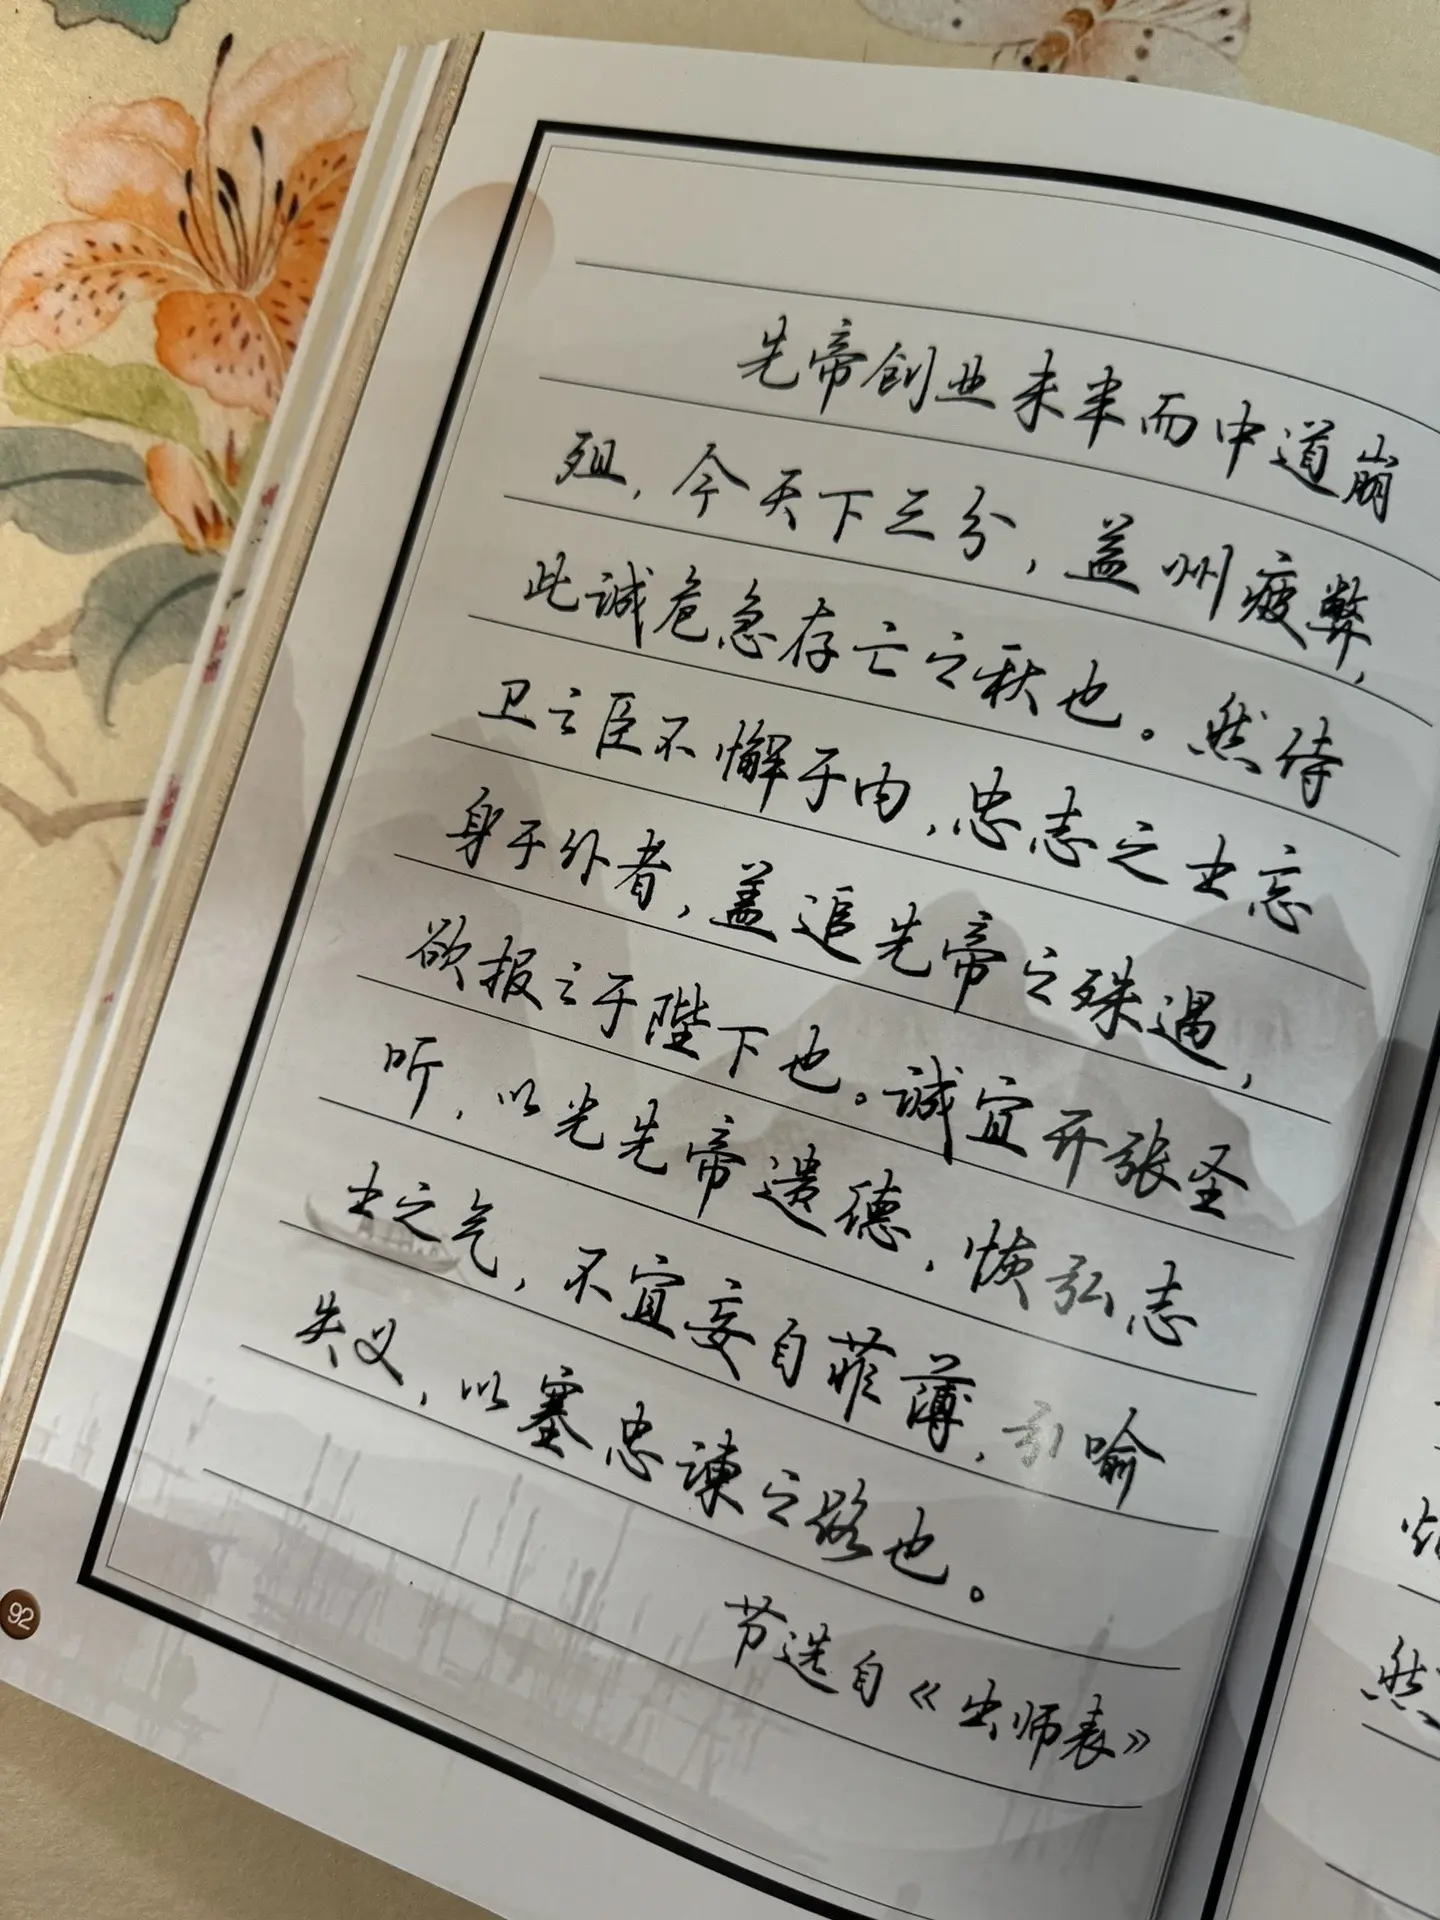 先帝创业未半而中道崩
殂，今天下三分，益州疲弊，
此诚危急存亡之秋也。然侍
卫之臣不懈于内，忠志之士忘
身于外者，盖追先帝之殊遇，
欲报之于陛下也。诚宜开张圣
听，以光先帝遗德，恢弘志
士之气，不宜妄自菲薄，引喻
失义，以塞忠谏之路也。
节选自《出师表》
92
然